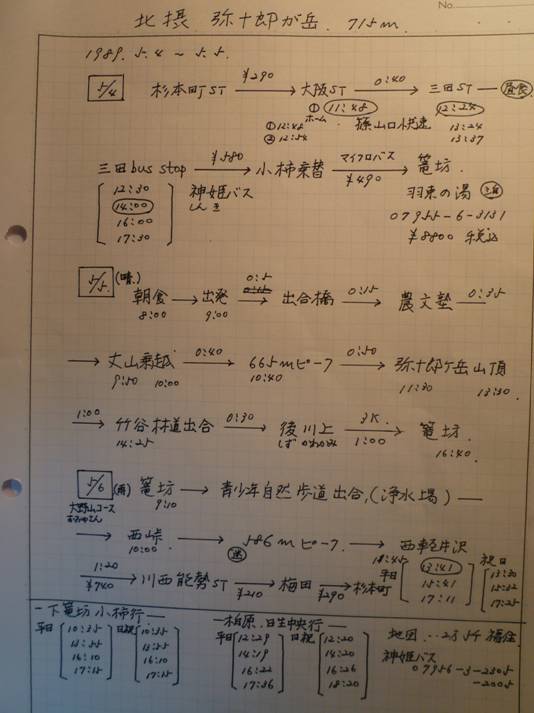 No.
北摂 弥十郎が岳. 715m.
1989. 5.4 ~ 5.5.
5/4 杉本町ST ¥290 → 大阪ST 0:40 → 三田ST — 昼食
① 11:48 12:24
ホーム・篠山口快速
① 12:48 13:24
② 12:54 13:37
三田bus stop ¥580 → 小柿乗替 マイクロバス ¥490 → 篭坊.
[12:30 14:00 16:00 17:30] 神姫バス しんき
羽束の湯
07955-6-3131
¥8800 税込
5/5. (晴.) 朝食 → 出発 0:5 → 出合橋 0:15 → 農文塾 0:35
8:00 9:00
→ 丈山乗越 0:40 → 665mピーク 0:50 → 弥十郎ヶ岳山頂
9:50 10:00 10:40 11:30 13:30
1:00 → 竹谷林道出合 0:30 → 後川上 3K. 1:00 → 篭坊.
14:25 しず かわかみ 16:40.
5/6 (雨) 篭坊 → 青少年自然歩道出合,(浄水場) —
大野山コース 9:10
→ 西峠. → 586mピーク. → 西軽井沢
10:00
1:20 ¥740 → 川西能勢ST ¥210 → 梅田 ¥290 → 杉本町
18:45
平日 [13:41 15:41 17:11] 祝日 [13:30 15:32 17:25]
— 下篭坊 小柿行 —
平日 [10:35 13:55 16:10 17:15] 日祝 [10:35 13:55 16:10 17:15]
— 柏原. 日生中央行 —
平日 [12:29 14:19 16:22 17:36] 日祝 [12:20 14:20 16:26 18:20]
地図 ‥ 2.5万 福住
神姫バス
07956-3-2305
-2005